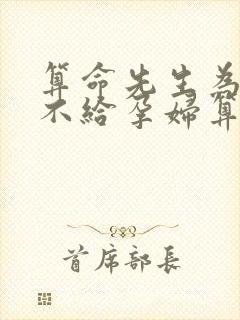 算命先生為
不給孕婦算
首席部長